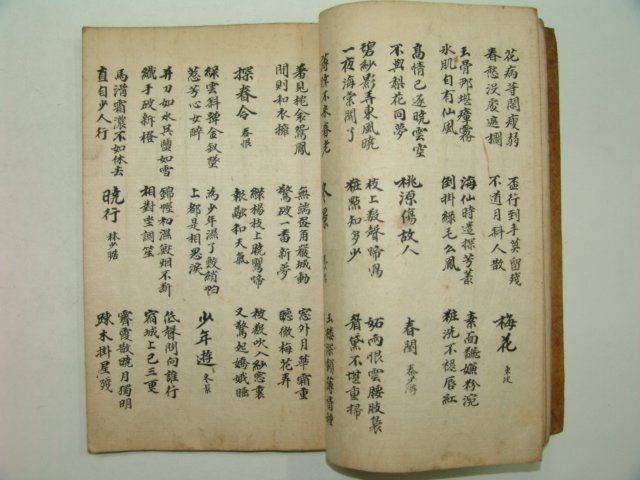 花病等閒瘦弱
春愁沒處遮攔
盃行到手莫留殘
不道月斜人散
梅花 東坡
玉骨那堪瘴霧
氷肌自有仙風
海仙時遣探芳叢
倒掛綠毛么鳳
素面翻嫌粉涴
粧洗不褪唇紅
高情已逐曉雲空
不與梨花同夢
桃源傷故人
春閨 秦少游
碧紗影弄東風曉
一夜海棠開了
枝上數聲啼鳥
粧點知多少
妬雨恨雲腰肢裊
眉黛不堪重掃
薄倖不來春老
冬景
玉樓深鎖薄情種
羞見枕衾鴛鳳
悶則和衣擁
無端畫角嚴城動
驚破一番新夢
窓外月華霜重
聽徹梅花弄
探春令 春恨
綠楊枝上曉鶯啼
報融和天氣
被數吹入紗窓裏
又驚起嫦娥睡
綠雲斜嚲金釵墜
惹芳心如醉
為少年濕了鮫綃帕
上都是相思淚
少年遊 冬景
并刀如水吳鹽如雪
纖手破新橙
錦幄初濕獸烟不斷
相對坐調笙
低聲問向誰行
宿城上已三更
馬滑霜濃不如休去
直自少人行
曉行 林少瞻
霽霞散曉月獨明
疎木掛星殘